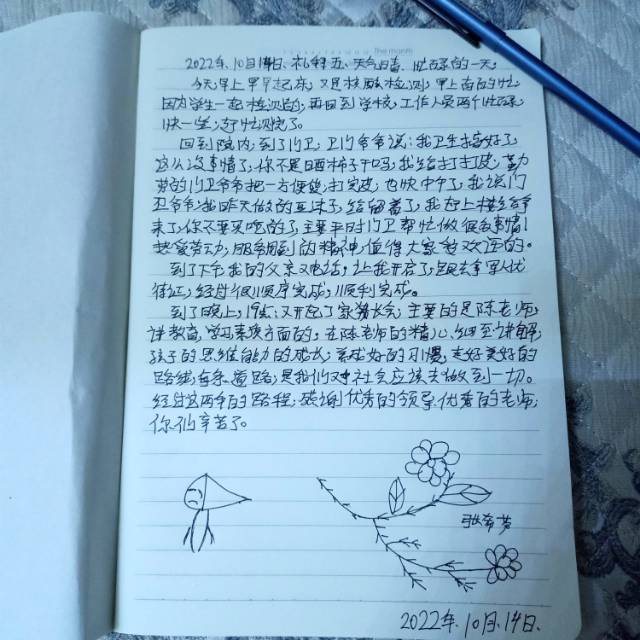 The month
2022年.10月14日.礼拜五.天气:晴.忙碌的一天,
今天早上早早起床,又是核酸检测,早上面的忙
因为学生一起检测的,再回到学校,工作人员两个忙碌
快一些,赶忙测完了。
回到院内,到了门卫,门卫爷爷说:我卫生搞好了,
这从没事情了,你不是晒柿子吗,我给打打泥,勤
劳的门卫爷爷把一方便袋,打完泥,也快中午了,我说门
卫爷爷:我昨天做的豆沫了,给留着了,我从上楼给拿
来了,你不要买吃的了,主要平时门卫帮忙做很多事情!
热爱劳动,服务周到的精神,值得大家喜欢迎的。
到了下午我的父亲又电话,让我开启了,去拿军人优
待证,经过很顺序完成,顺利完成。
到了晚上,19点:又开起了家长会,主要的是陈老师,
讲教育,学习素质方面的,在陈老师的精心,细至讲解
孩子的思维能力的成长,养成好的习惯,走好美好的
路线,每条道路,是我们对社会应该去做到一切。
经过这两年的路程,感谢优秀的领导,优秀的老师,
你们辛苦了。
2022年.10月.14日.